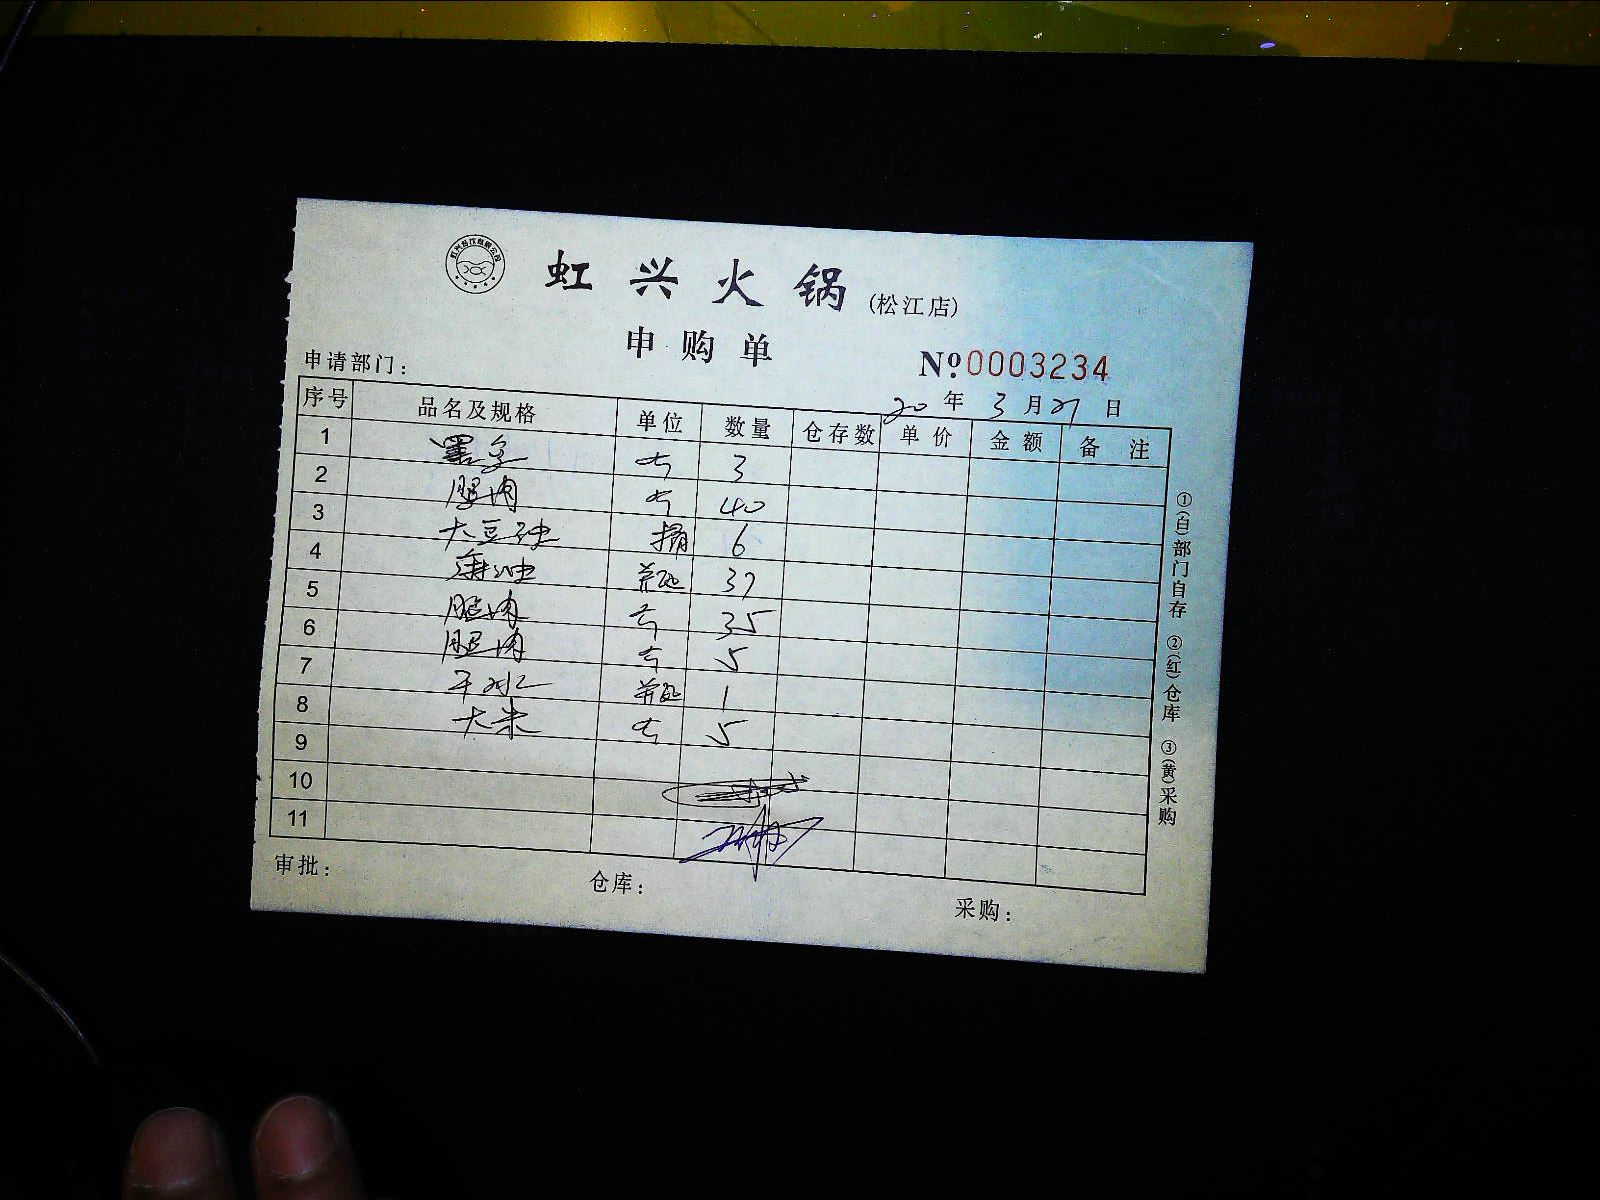 虹兴火锅(松江店)
申购单
申请部门: №0003234
20年3月21日
序号 品名及规格 单位 数量 仓存数 单价 金额 备注
1 墨鱼 3
2 腿肉 40
3 大豆油 桶 6
4 37
5 腿肉 35
6 腿肉 5
7 1
8 大米 5
9
10
11
审批: 仓库: 采购:
①(白)部门自存 ②(红)仓库 ③(黄)采购